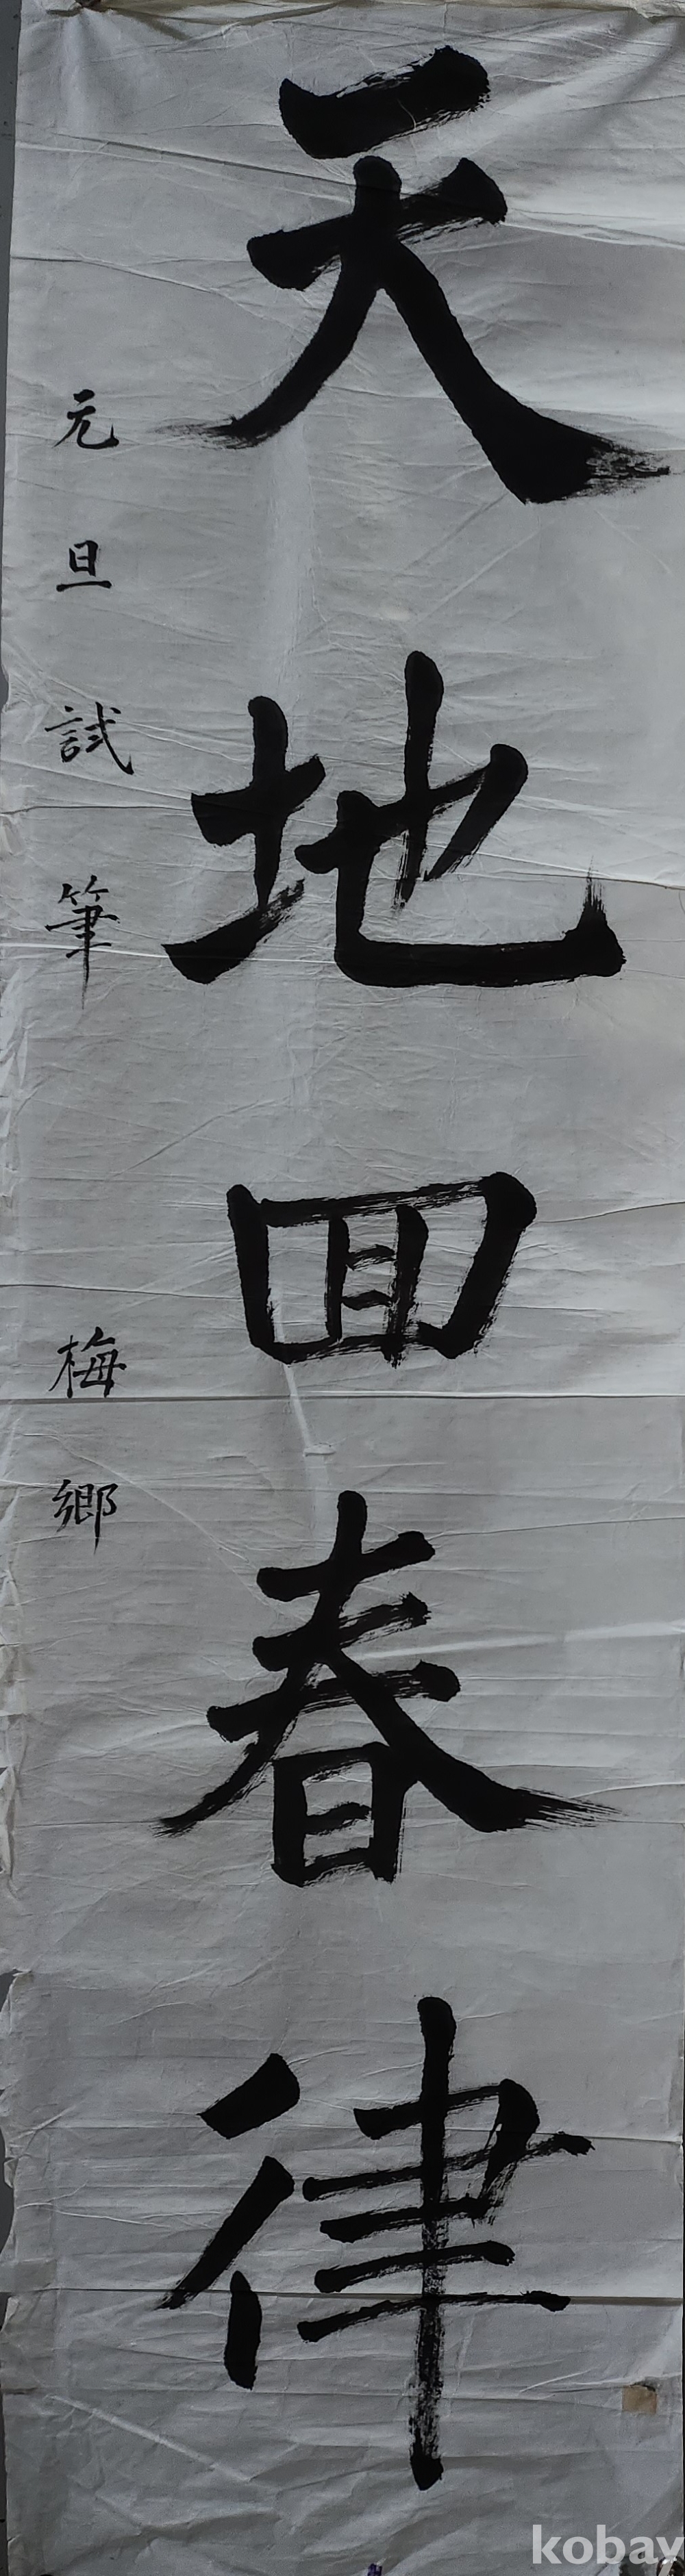 天地回春律
元旦試筆 梅鄉
kobay